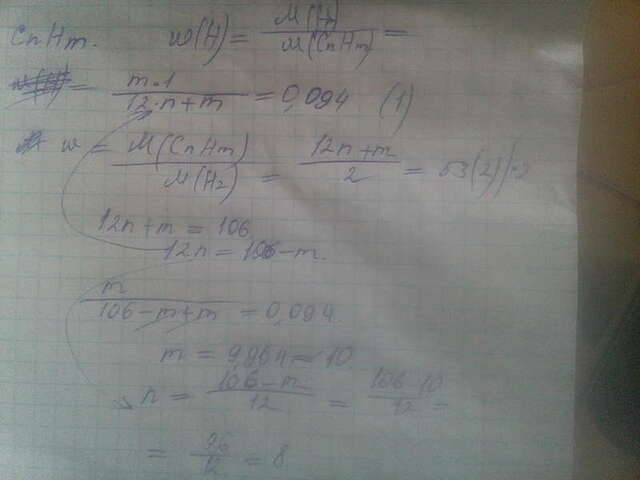 CnHm. w(H) = M(Hm) / M(CnHm) =
= m·1 / 12·n+m = 0,094 (1)
w = M(CnHm) / M(H2) = 12n+m / 2 = 53 (2) |·2
12n+m = 106
12n = 106-m.
m / 106-m+m = 0,094
m = 9,964 = 10
n = 106-m / 12 = 106-10 / 12 =
= 96 / 12 = 8